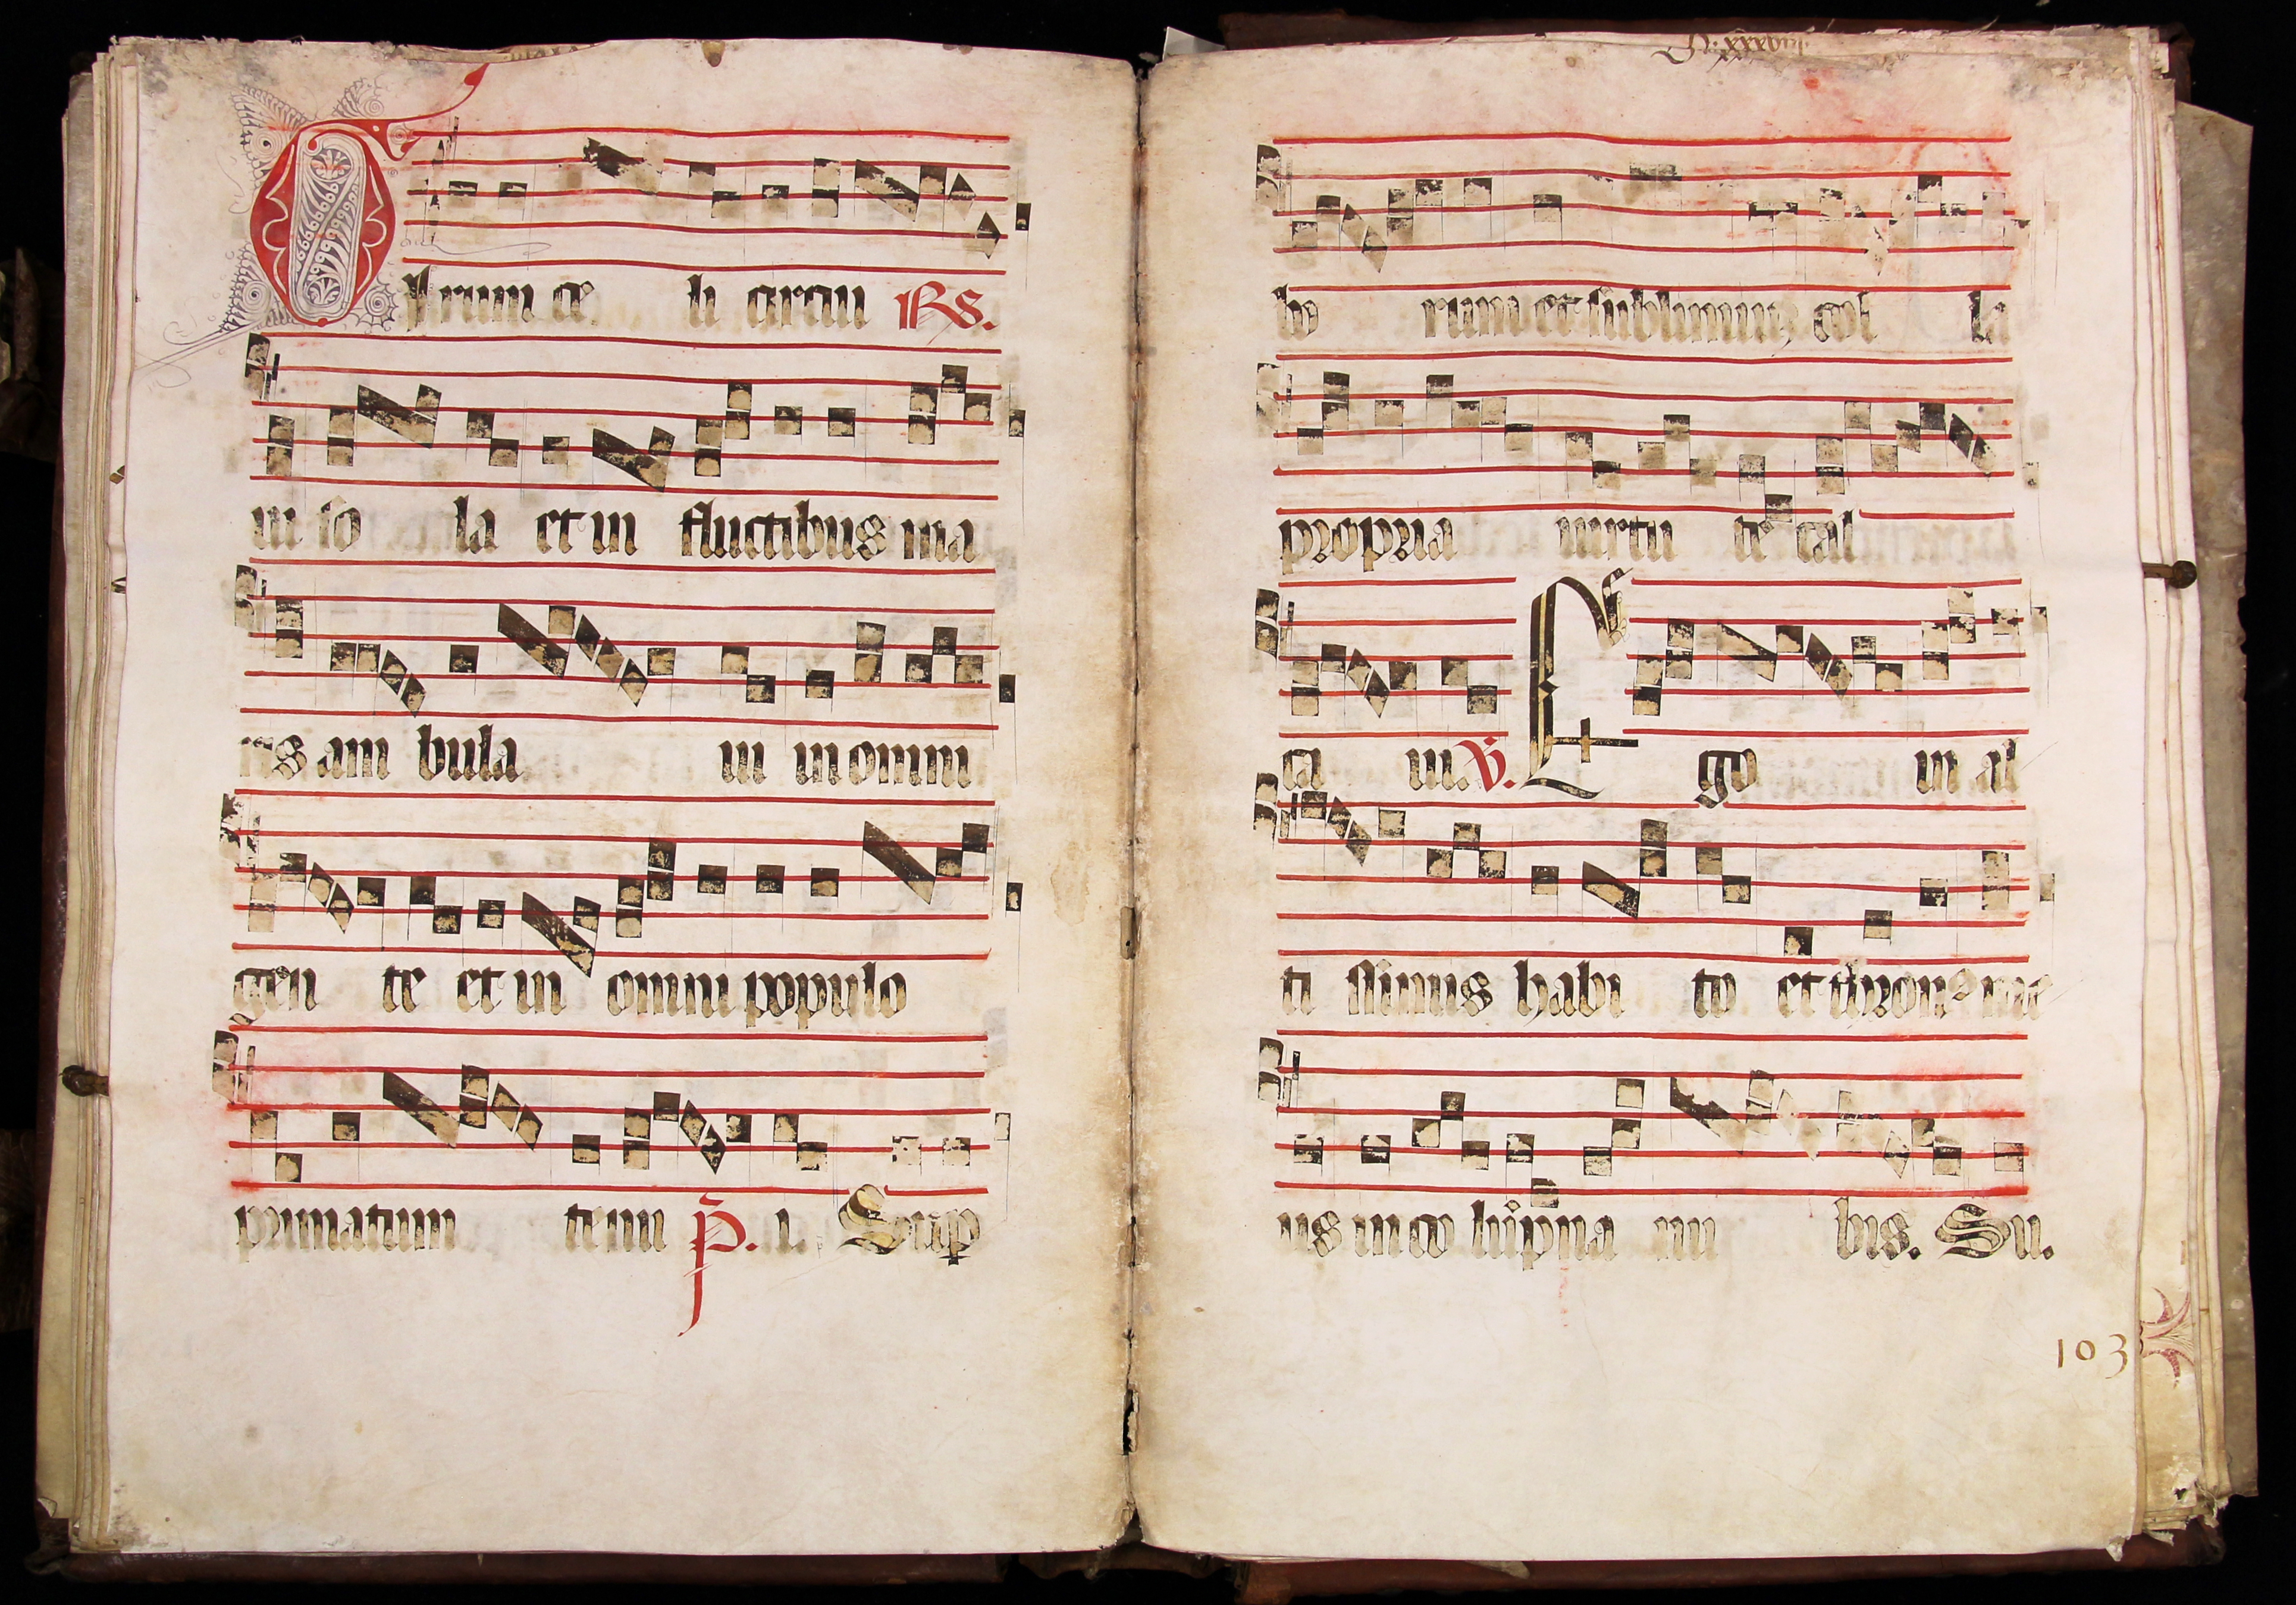 Gyrum ce li circui Rs.
in so la et in fluctibus ma
ris am bula ui in omni
gen te et in omni populo
primatum tenui p. i. Sup
bo rum et sublimium col la
propria uirtu te cal
ca ui. V. Ego in al
ti ssimis habi to et thronus me
us in colupna nu bis. Su.
103